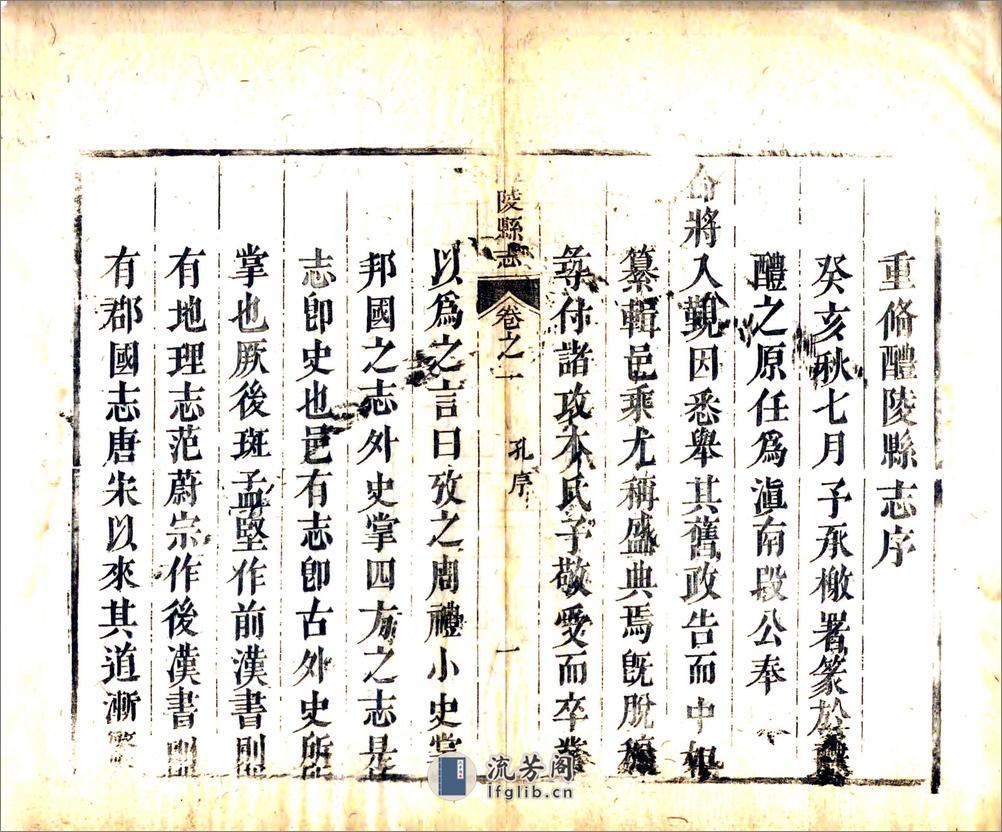 重脩醴陵縣志序
癸亥秋七月予承檄署篆於
醴之原任爲滇南段公奉
命將入覲因悉舉其舊政告而中如
纂輯邑乘尤稱盛典焉旣脫稿
付諸攻木氏予敬受而卒業
陵縣志
卷之一
孔序
一
以爲之言曰攷之周禮小史掌
邦國之志外史掌四方之志是
志卽史也邑有志卽古外史所
掌也厥後班孟堅作前漢書則
有地理志范蔚宗作後漢書則
有郡國志唐宋以來其道漸繁
流芳阁
lfglib.cn